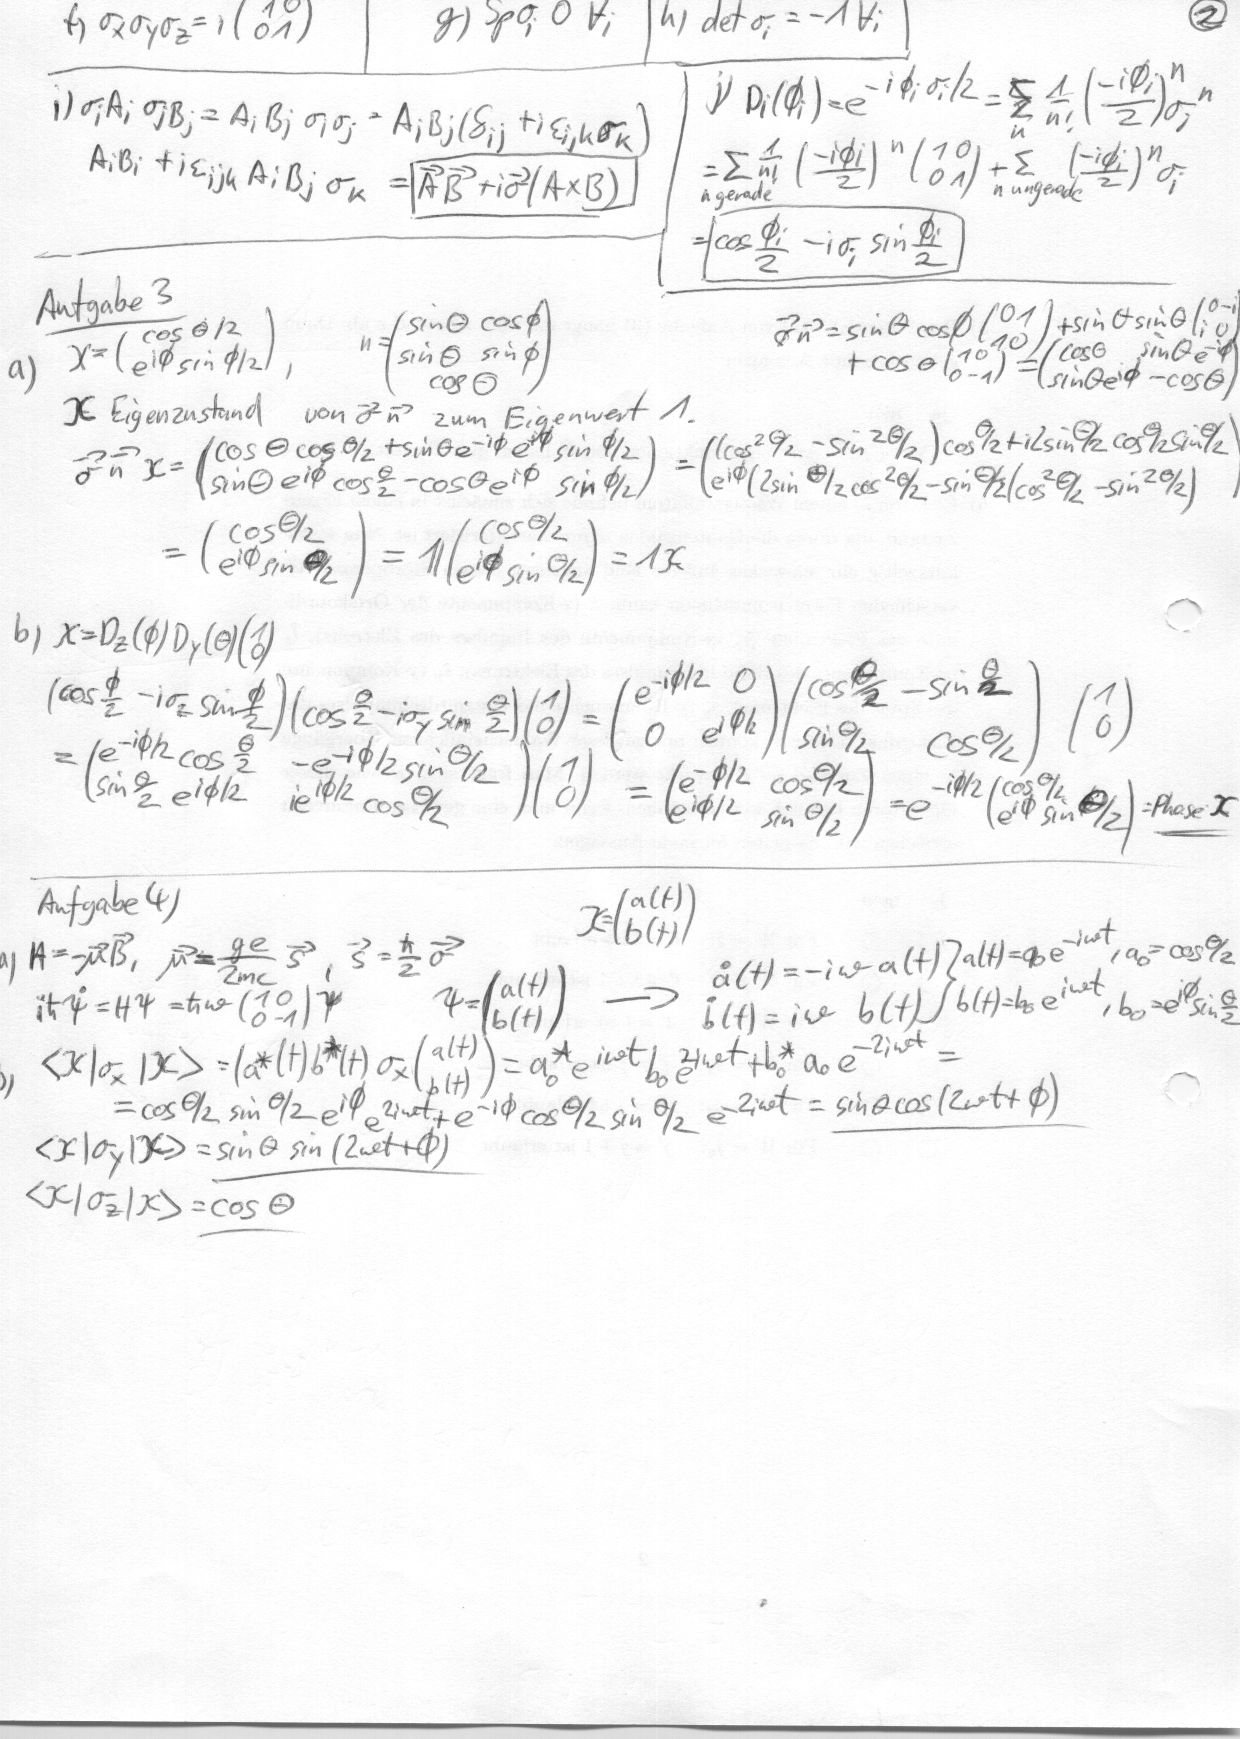 f) σxσyσz = i (1 0 / 0 1) | g) Sp σi 0 ∀i | h) det σi = -1 ∀i ②
i) σiAi σjBj = AiBj σiσj = AiBj(δij + iεijkσk)
AiBi + iεijk AiBj σk = A⃗B⃗ + iσ⃗(A×B)
j) Di(ϕi) = e^{-iϕiσi/2} = Σ_n 1/n! (-iϕi/2)^n σi^n
= Σ_{n gerade} 1/n! (-iϕi/2)^n (1 0 / 0 1) + Σ_{n ungerade} (-iϕi/2)^n σi
= cos ϕi/2 - iσi sin ϕi/2
Aufgabe 3
a) χ = (cos θ/2 / e^{iϕ} sin ϕ/2), n = (sinθ cosϕ / sinθ sinϕ / cosθ)
σ⃗n⃗ = sinθ cosϕ (0 1 / 1 0) + sinθ sinθ (0 -i / i 0)
+ cosθ (1 0 / 0 -1) = (cosθ sinθe^{-iϕ} / sinθe^{iϕ} -cosθ)
χ Eigenzustand von σ⃗n⃗ zum Eigenwert 1.
σ⃗n⃗ χ = (cosθ cosθ/2 + sinθe^{-iϕ}e^{iϕ} sin ϕ/2 / sinθ e^{iϕ} cos θ/2 - cosθe^{iϕ} sin ϕ/2) = ((cos²θ/2 - sin²θ/2)cosθ/2 + i2sinθ/2 cosθ/2 sinθ/2 / e^{iϕ}(2sinθ/2 cos²θ/2 - sinθ/2(cos²θ/2 - sin²θ/2))
= (cosθ/2 / e^{iϕ}sinθ/2) = 𝟙(cosθ/2 / e^{iϕ}sinθ/2) = 1χ
b) χ = Dz(ϕ)Dy(θ)(1 / 0)
(cos ϕ/2 - iσz sin ϕ/2)(cos θ/2 - iσy sin θ/2)(1 / 0) = (e^{-iϕ/2} 0 / 0 e^{iϕ/2})(cos θ/2 -sin θ/2 / sinθ/2 cosθ/2)(1 / 0)
= (e^{-iϕ/2} cos θ/2 -e^{-iϕ/2} sinθ/2 / sin θ/2 e^{iϕ/2} ie^{iϕ/2} cosθ/2)(1 / 0) = (e^{-ϕ/2} cosθ/2 / e^{iϕ/2} sinθ/2) = e^{-iϕ/2}(cosθ/2 / e^{iϕ}sinθ/2) = Phase χ
Aufgabe 4)
χ = (a(t) / b(t))
a) H = -μ⃗B⃗, μ⃗ = ge/2mc S⃗, S⃗ = ħ/2 σ⃗
iħΨ̇ = HΨ = ħω(1 0 / 0 -1)Ψ Ψ = (a(t) / b(t)) ⟶ ȧ(t) = -iω a(t) } a(t) = a0e^{-iωt}, a0 = cosθ/2
ḃ(t) = iω b(t) } b(t) = b0 e^{iωt}, b0 = e^{iϕ}sin θ/2
b) <χ|σx|χ> = (a*(t)b*(t) σx (a(t) / b(t)) = a0* e^{iωt} b0 e^{2iωt} + b0* a0 e^{-2iωt} =
= cosθ/2 sinθ/2 e^{iϕ}e^{2iωt} + e^{-iϕ}cosθ/2 sinθ/2 e^{-2iωt} = sinθ cos(2ωt+ϕ)
<χ|σy|χ> = sinθ sin(2ωt+ϕ)
<χ|σz|χ> = cosθ